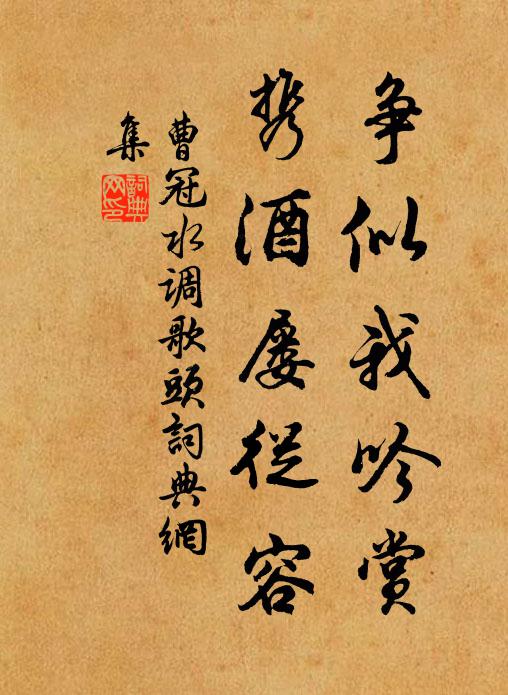 争似我吟赏
携酒屡從容
曹冠水调歌頭詞典網
集
詞典网印